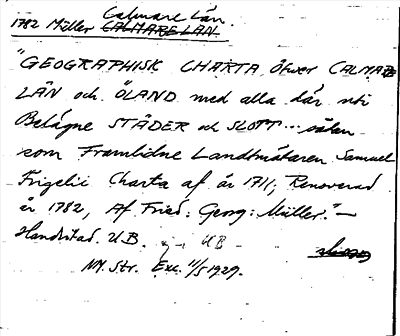 Calmare Län.
1782 Müller CALMARE LÄN
"GEOGRAPHISK CHARTA Öfwer CALMARE
LÄN och ÖLAND med alla där uti
Belägne STÄDER och SLOTT...
som Framlidne Landtmätaren Samuel
Frigelii Charta af år 1711, Renoverad
år 1782, Af Fried: Georg: Müller." —
Handritad. U.B. UB
NM. Str. Exc. 11/5 1929.